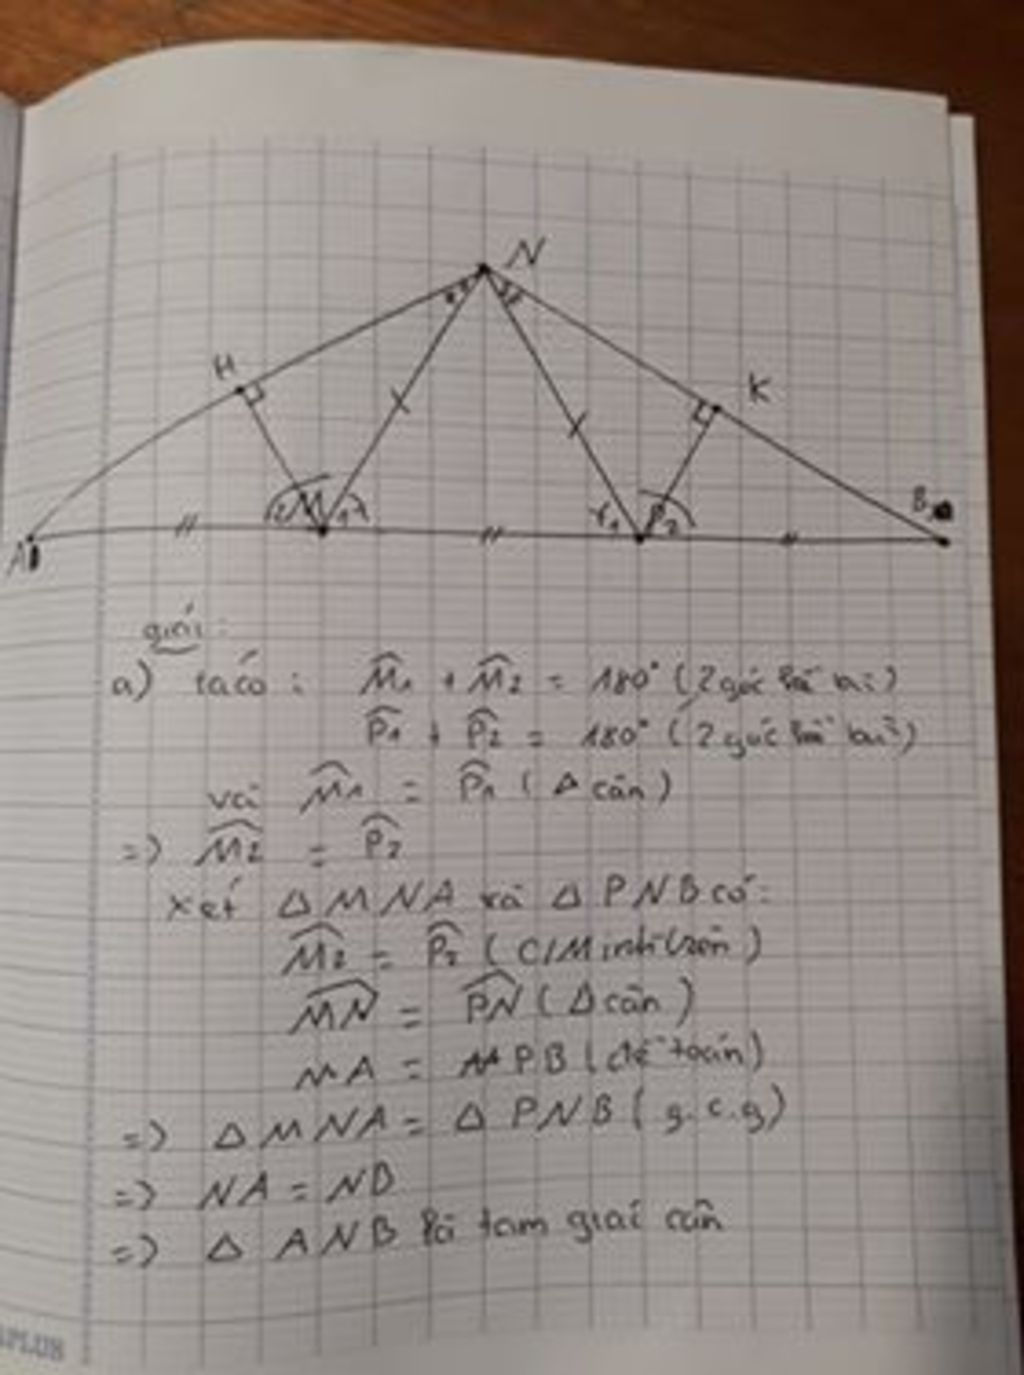 N
H
K
M
1
2
1
P
2
B
A
giải:
a) ta có: M̂1 + M̂2 = 180° (2 góc kề bù)
P̂1 + P̂2 = 180° (2 góc kề bù)
và M̂1 = P̂1 (Δ cân)
=> M̂2 = P̂2
xét Δ MNA và Δ PNB có:
M̂2 = P̂2 (C/M trên)
M̂N = P̂N (Δ cân)
MA = PB (đề toán)
=> Δ MNA = Δ PNB (g.c.g)
=> NA = NB
=> Δ ANB là tam giác cân
PLUS